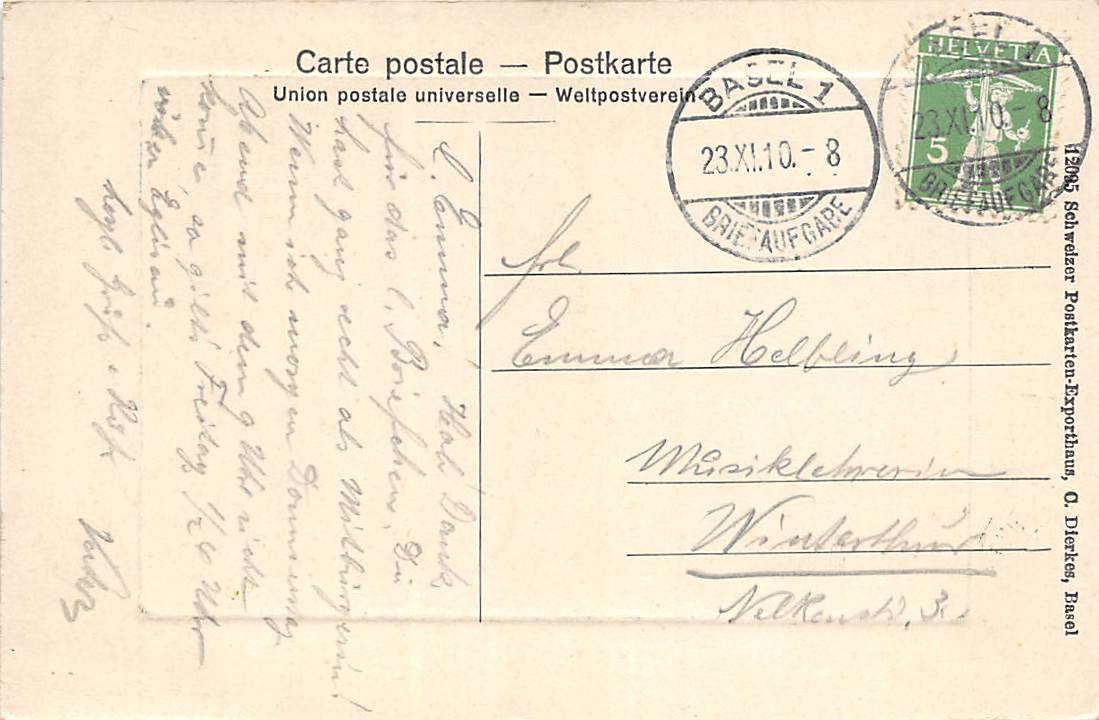 Carte postale — Postkarte
Union postale universelle — Weltpostverein
BASEL 1
23.XI.10.-8
BRIEFAUFGABE
BASEL 1
23.XI.10.-8
BRIEFAUFGABE
HELVETIA
5
Frl
Emma Helbling
Musiklehrerin
Winterthur
Nelkenstr. 3.
L. Emma, Hab Dank
für das l. Briefchen. Du
hast ganz recht als Mitbürgerin!
Wenn ich morgen Donnerstag
Abend mit dem 9 Uhr nicht
komme, so gilts Freitag 1/2 6 Uhr
Gruß
12095 Schweizer Postkarten-Exporthaus, C. Dierkes, Basel